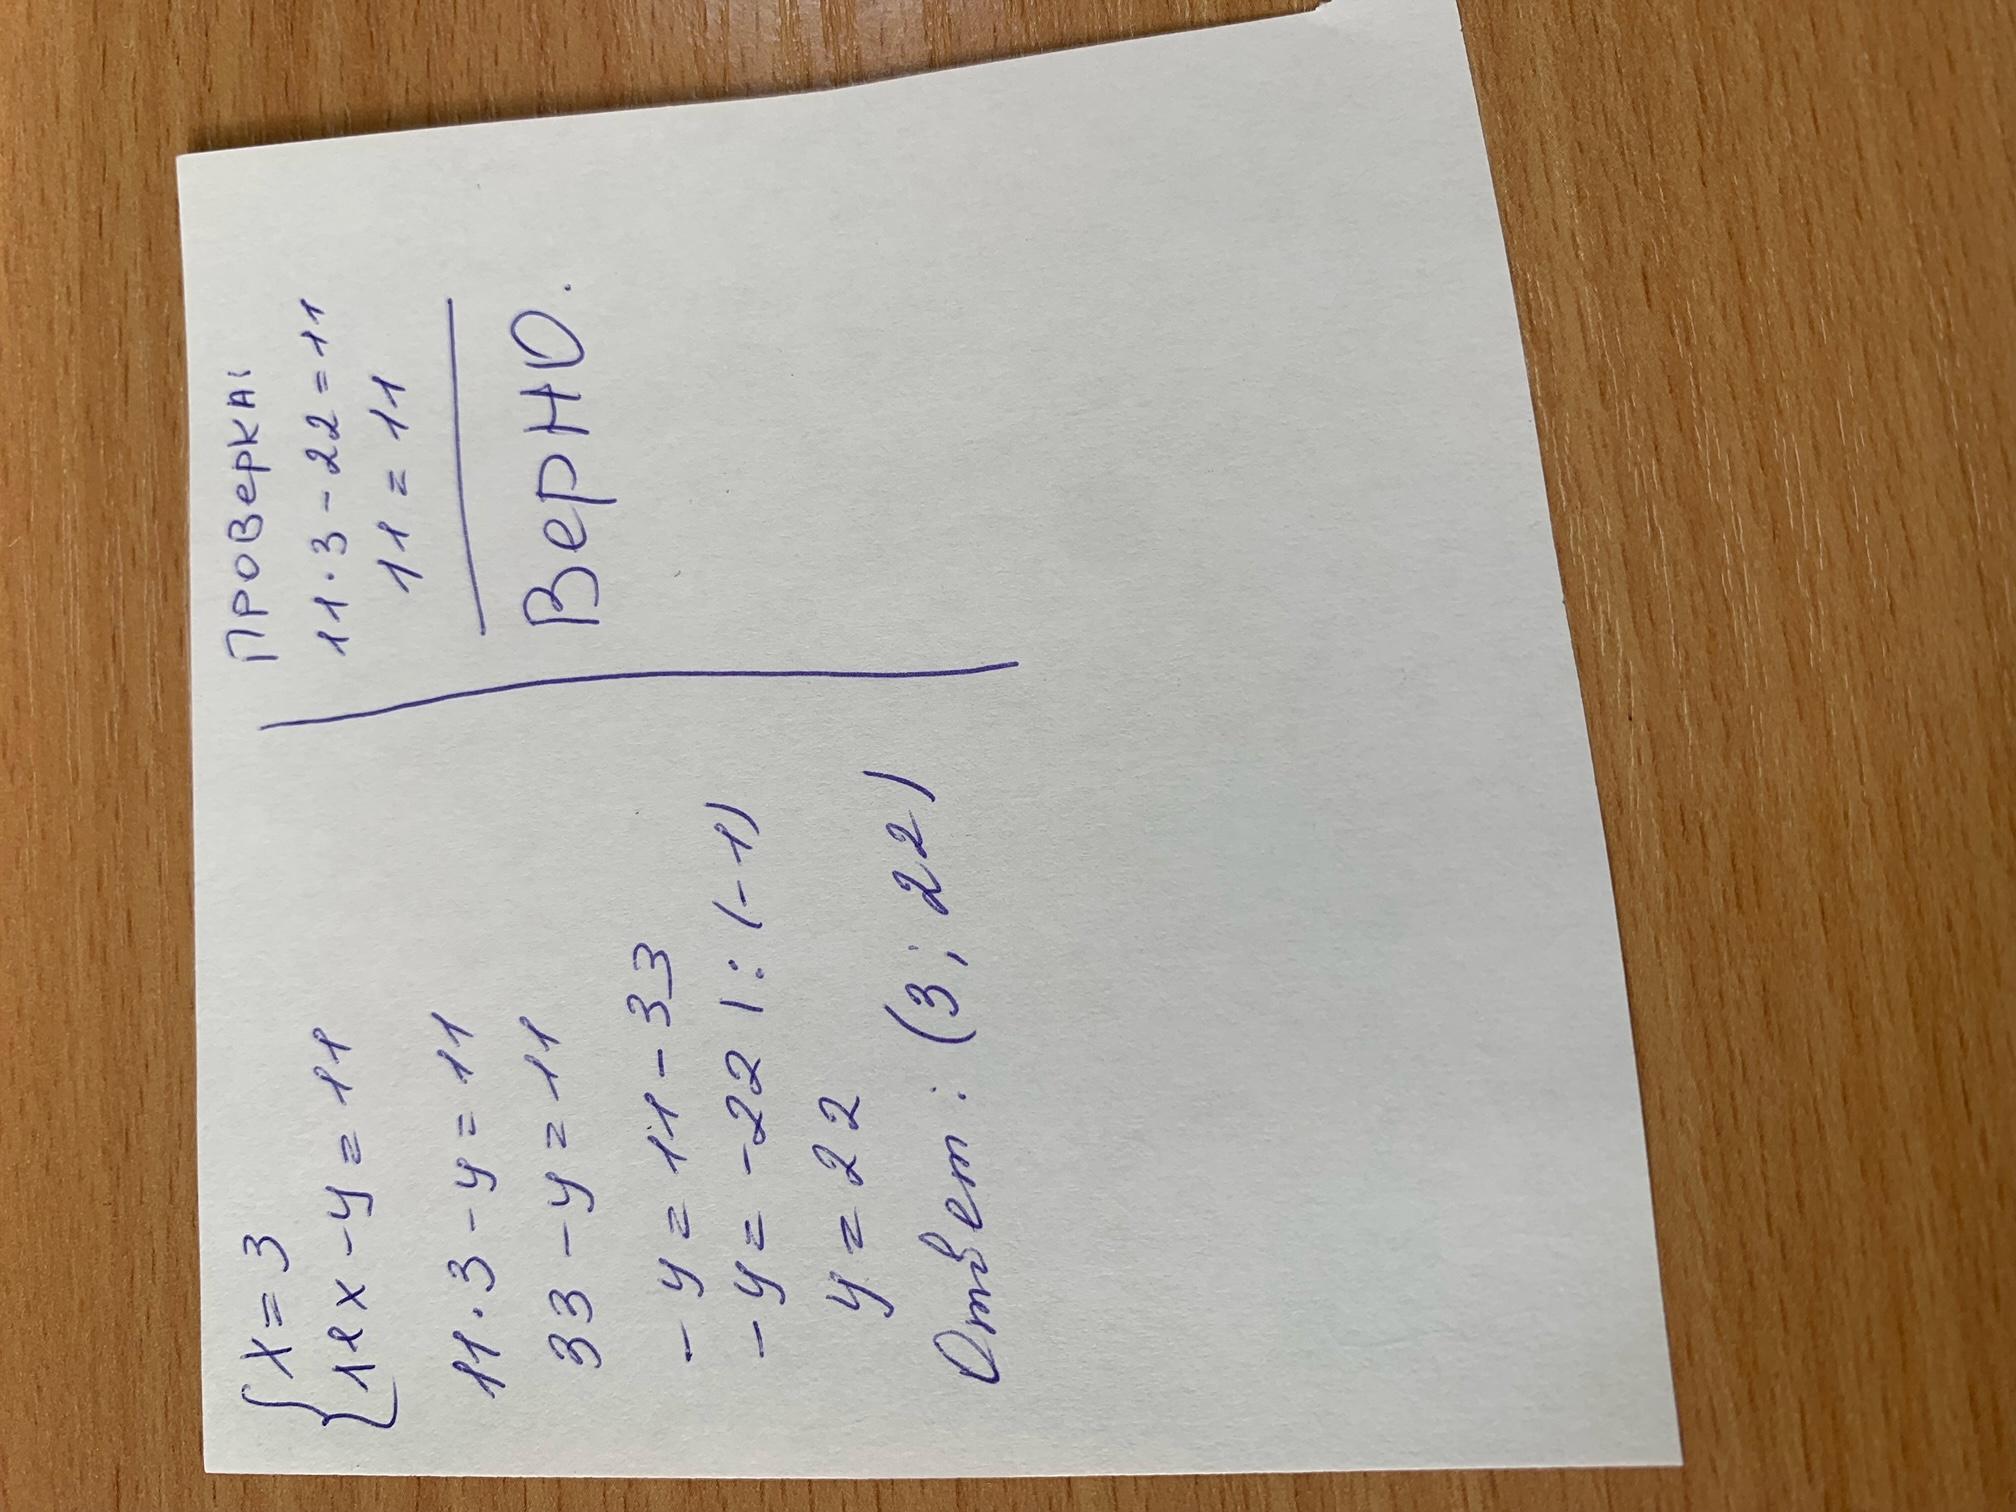 { x = 3
11x - y = 11
11 · 3 - y = 11
33 - y = 11
- y = 11 - 33
- y = -22 | : (-1)
y = 22
Ответ: (3; 22)
Проверка:
11 · 3 - 22 = 11
11 = 11
Верно.